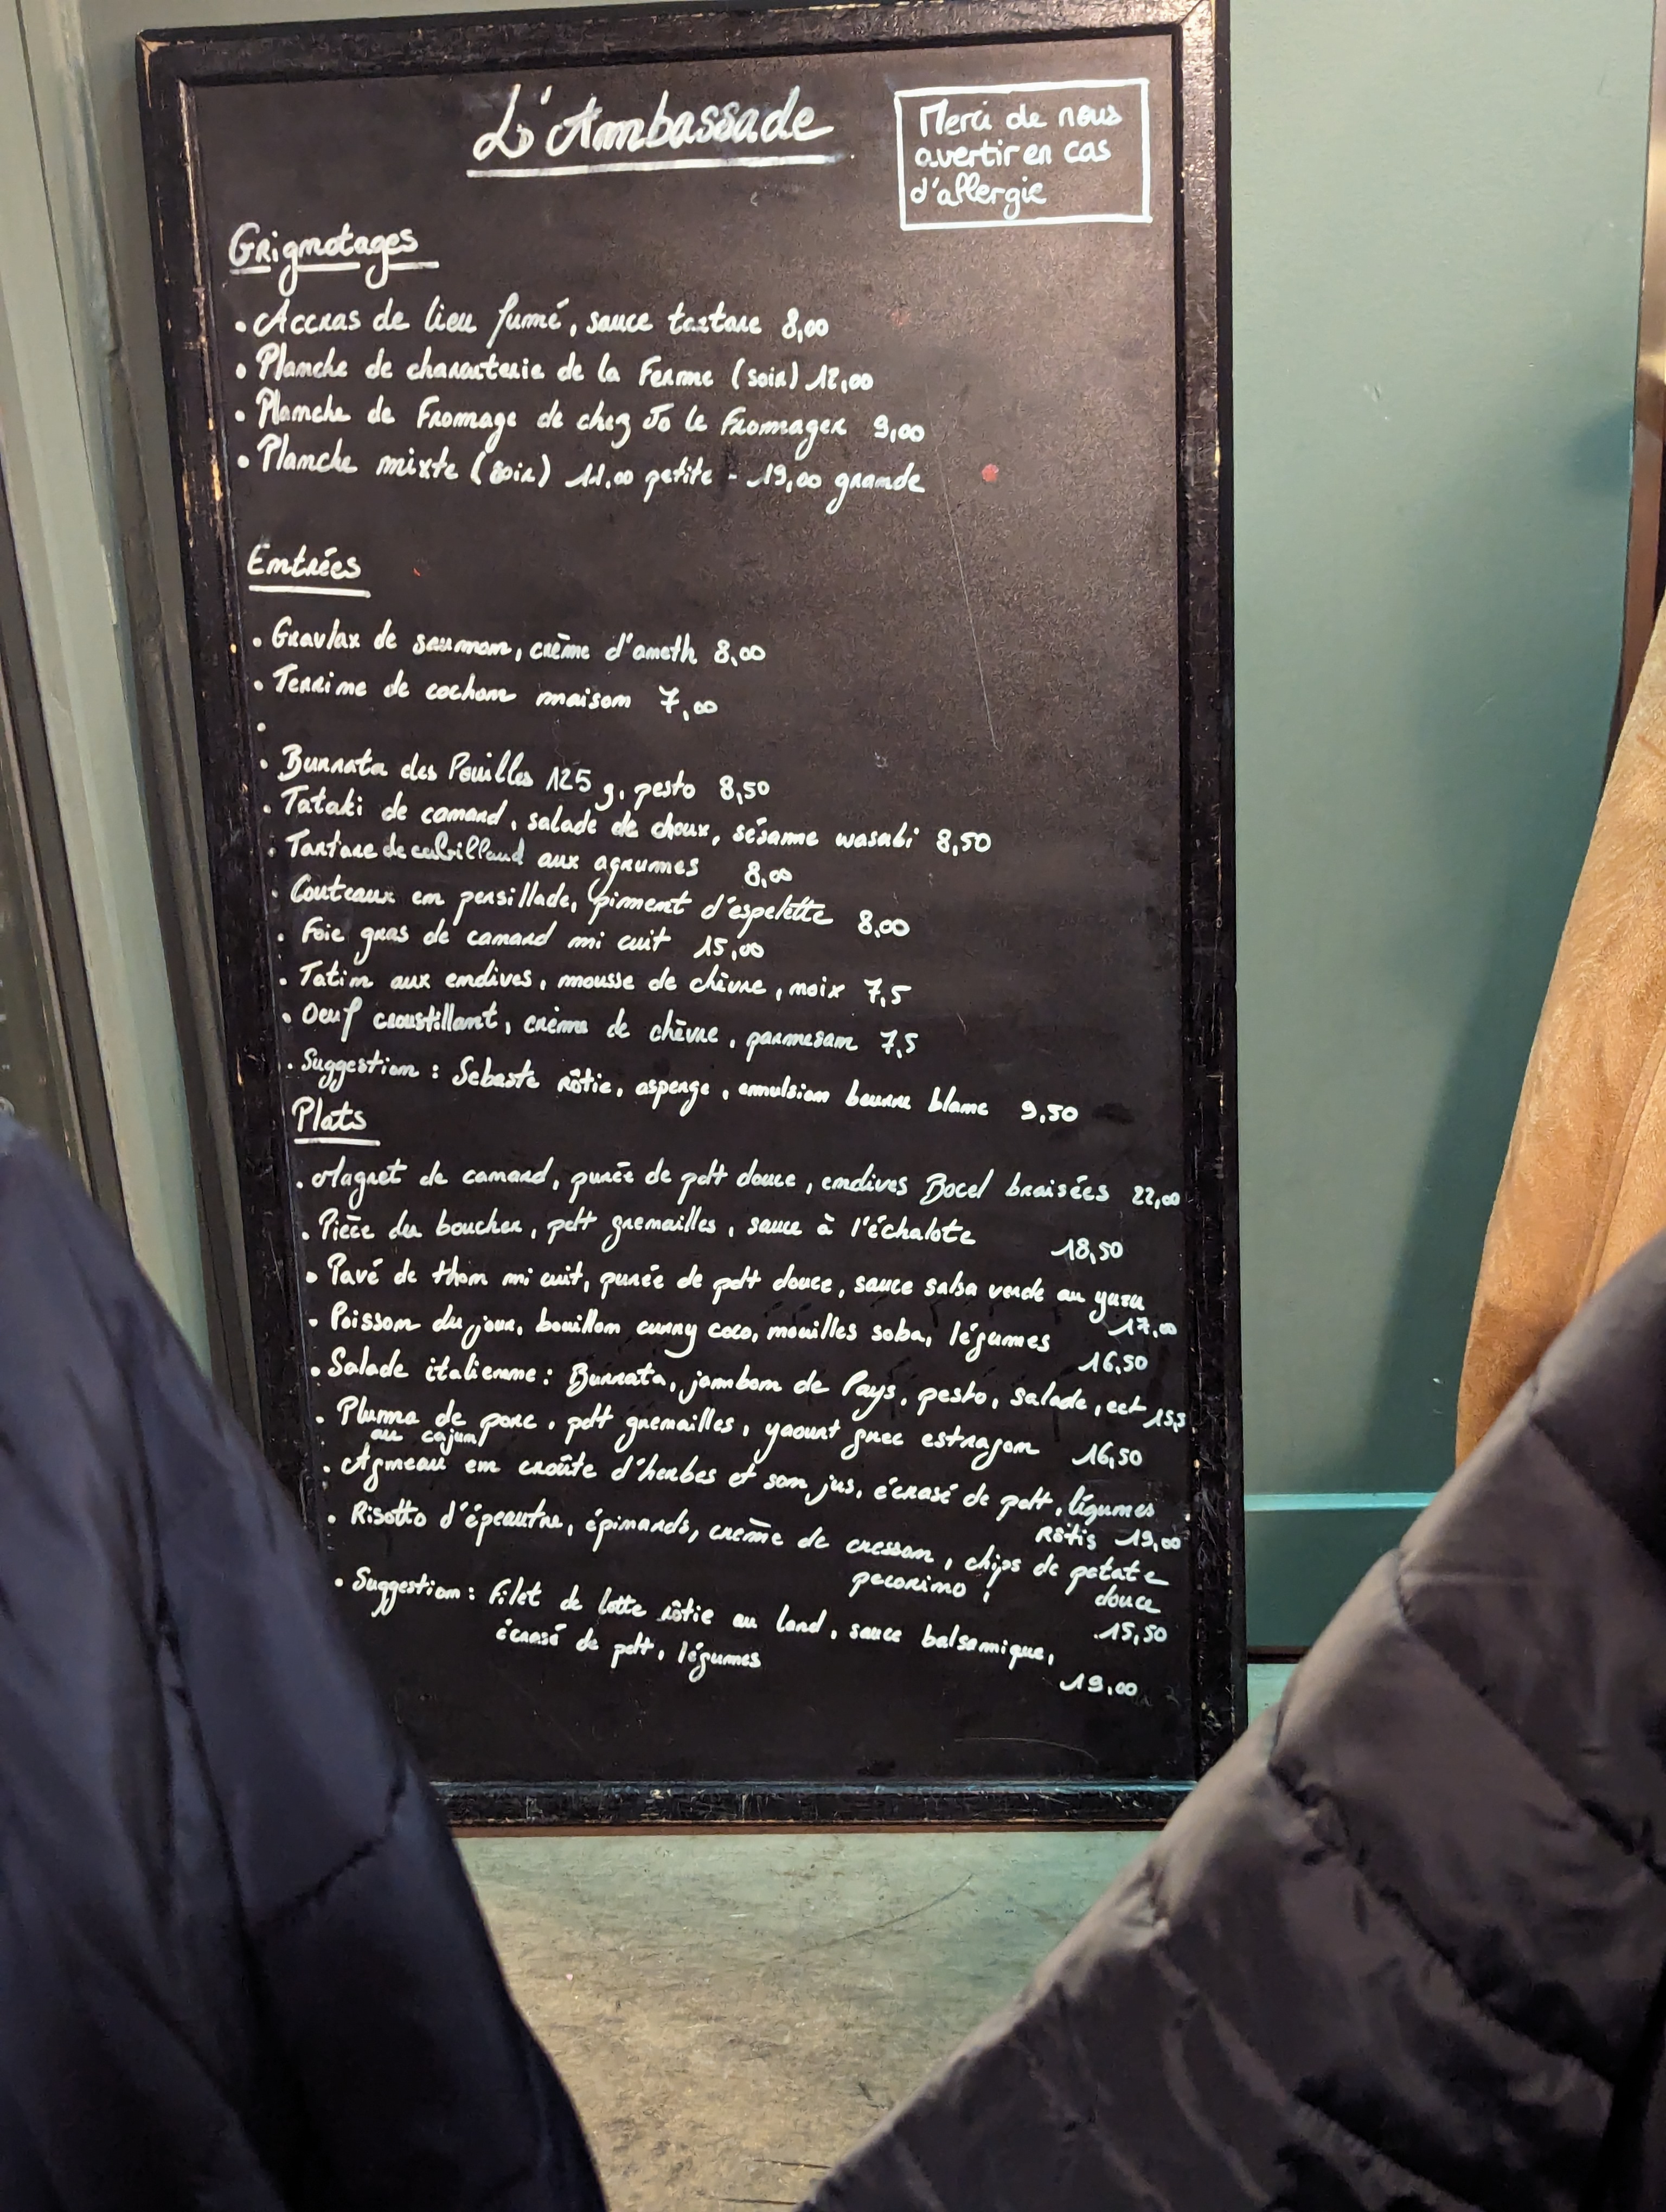 L'Ambassade
Merci de nous
avertir en cas
d'allergie
Grignotages
• Accras de lieu fumé, sauce tartare 8,00
• Planche de charcuterie de la Ferme (soir) 12,00
• Planche de Fromage de chez Jo le Fromager 9,00
• Planche mixte (soir) 11,00 petite - 19,00 grande
Entrées
• Gravlax de saumon, crème d'aneth 8,00
• Terrine de cochon maison 7,00
•
• Burrata des Pouilles 125 g, pesto 8,50
• Tataki de canard, salade de choux, sésame wasabi 8,50
• Tartare de cabillaud aux agrumes 8,00
• Couteaux en persillade, piment d'espelette 8,00
• Foie gras de canard mi cuit 15,00
• Tatin aux endives, mousse de chèvre, noix 7,5
• Oeuf croustillant, crème de chèvre, parmesan 7,5
• Suggestion : Sebaste rôtie, asperge, emulsion beurre blanc 9,50
Plats
• Magret de canard, purée de pdt douce, endives Bocel braisées 22,00
• Pièce du boucher, pdt grenailles, sauce à l'échalote 18,50
• Pavé de thon mi cuit, purée de pdt douce, sauce salsa verde au yuzu
17,00
• Poisson du jour, bouillon curry coco, nouilles soba, légumes 16,50
• Salade italienne : Burrata, jambon de Pays, pesto, salade, ect 15,5
• Pluma de porc, pdt grenailles, yaourt grec estragon 16,50
au cajun
• Agneau en croûte d'herbes et son jus, écrasé de pdt, légumes
rôtis 19,00
• Risotto d'épeautre, épinards, crème de cresson, chips de patate
pecorino, douce
15,50
• Suggestion : Filet de lotte rôtie au lard, sauce balsamique,
écrasé de pdt, légumes
19,00